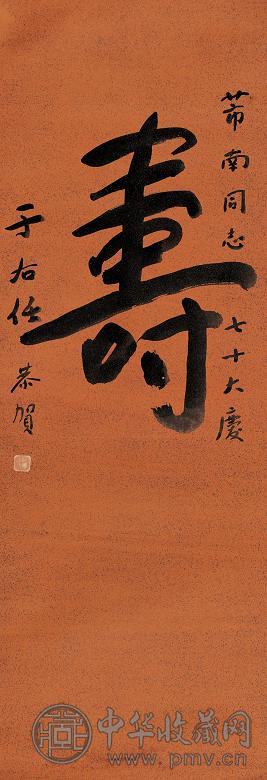 芾南同志 七十大慶
壽
于右任 恭賀
中华收藏网
www.pmv.cn